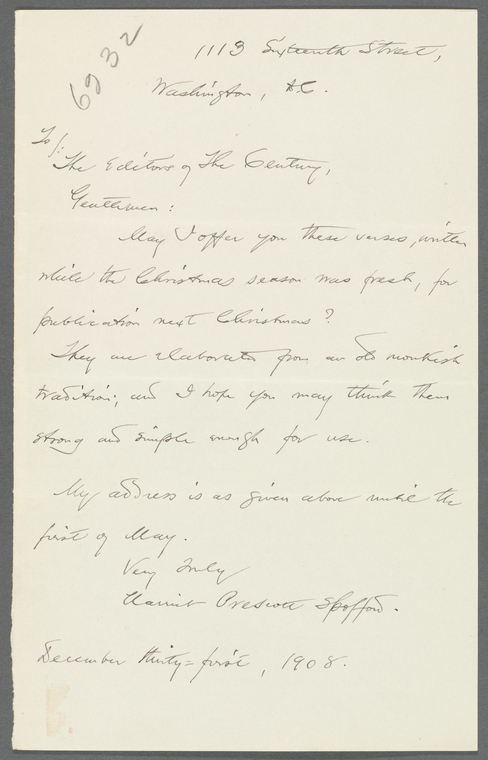 6932
1113 Sixteenth Street,
Washington, D.C.
To/:
The Editors of The Century,
Gentlemen:
May I offer you these verses, written
while the Christmas season was fresh, for
publication next Christmas?
They are elaborated from an old monkish
tradition; and I hope you may think them
strong and simple enough for use.
My address is as given above until the
first of May.
Very truly
Harriet Prescott Spofford.
December thirty=first, 1908.